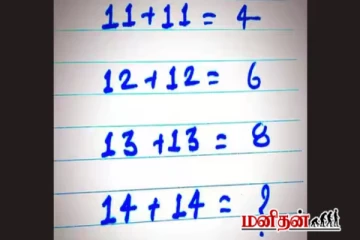 11+11 = 4
12+12 = 6
13+13 = 8
14+14 = ?
மனிதன்